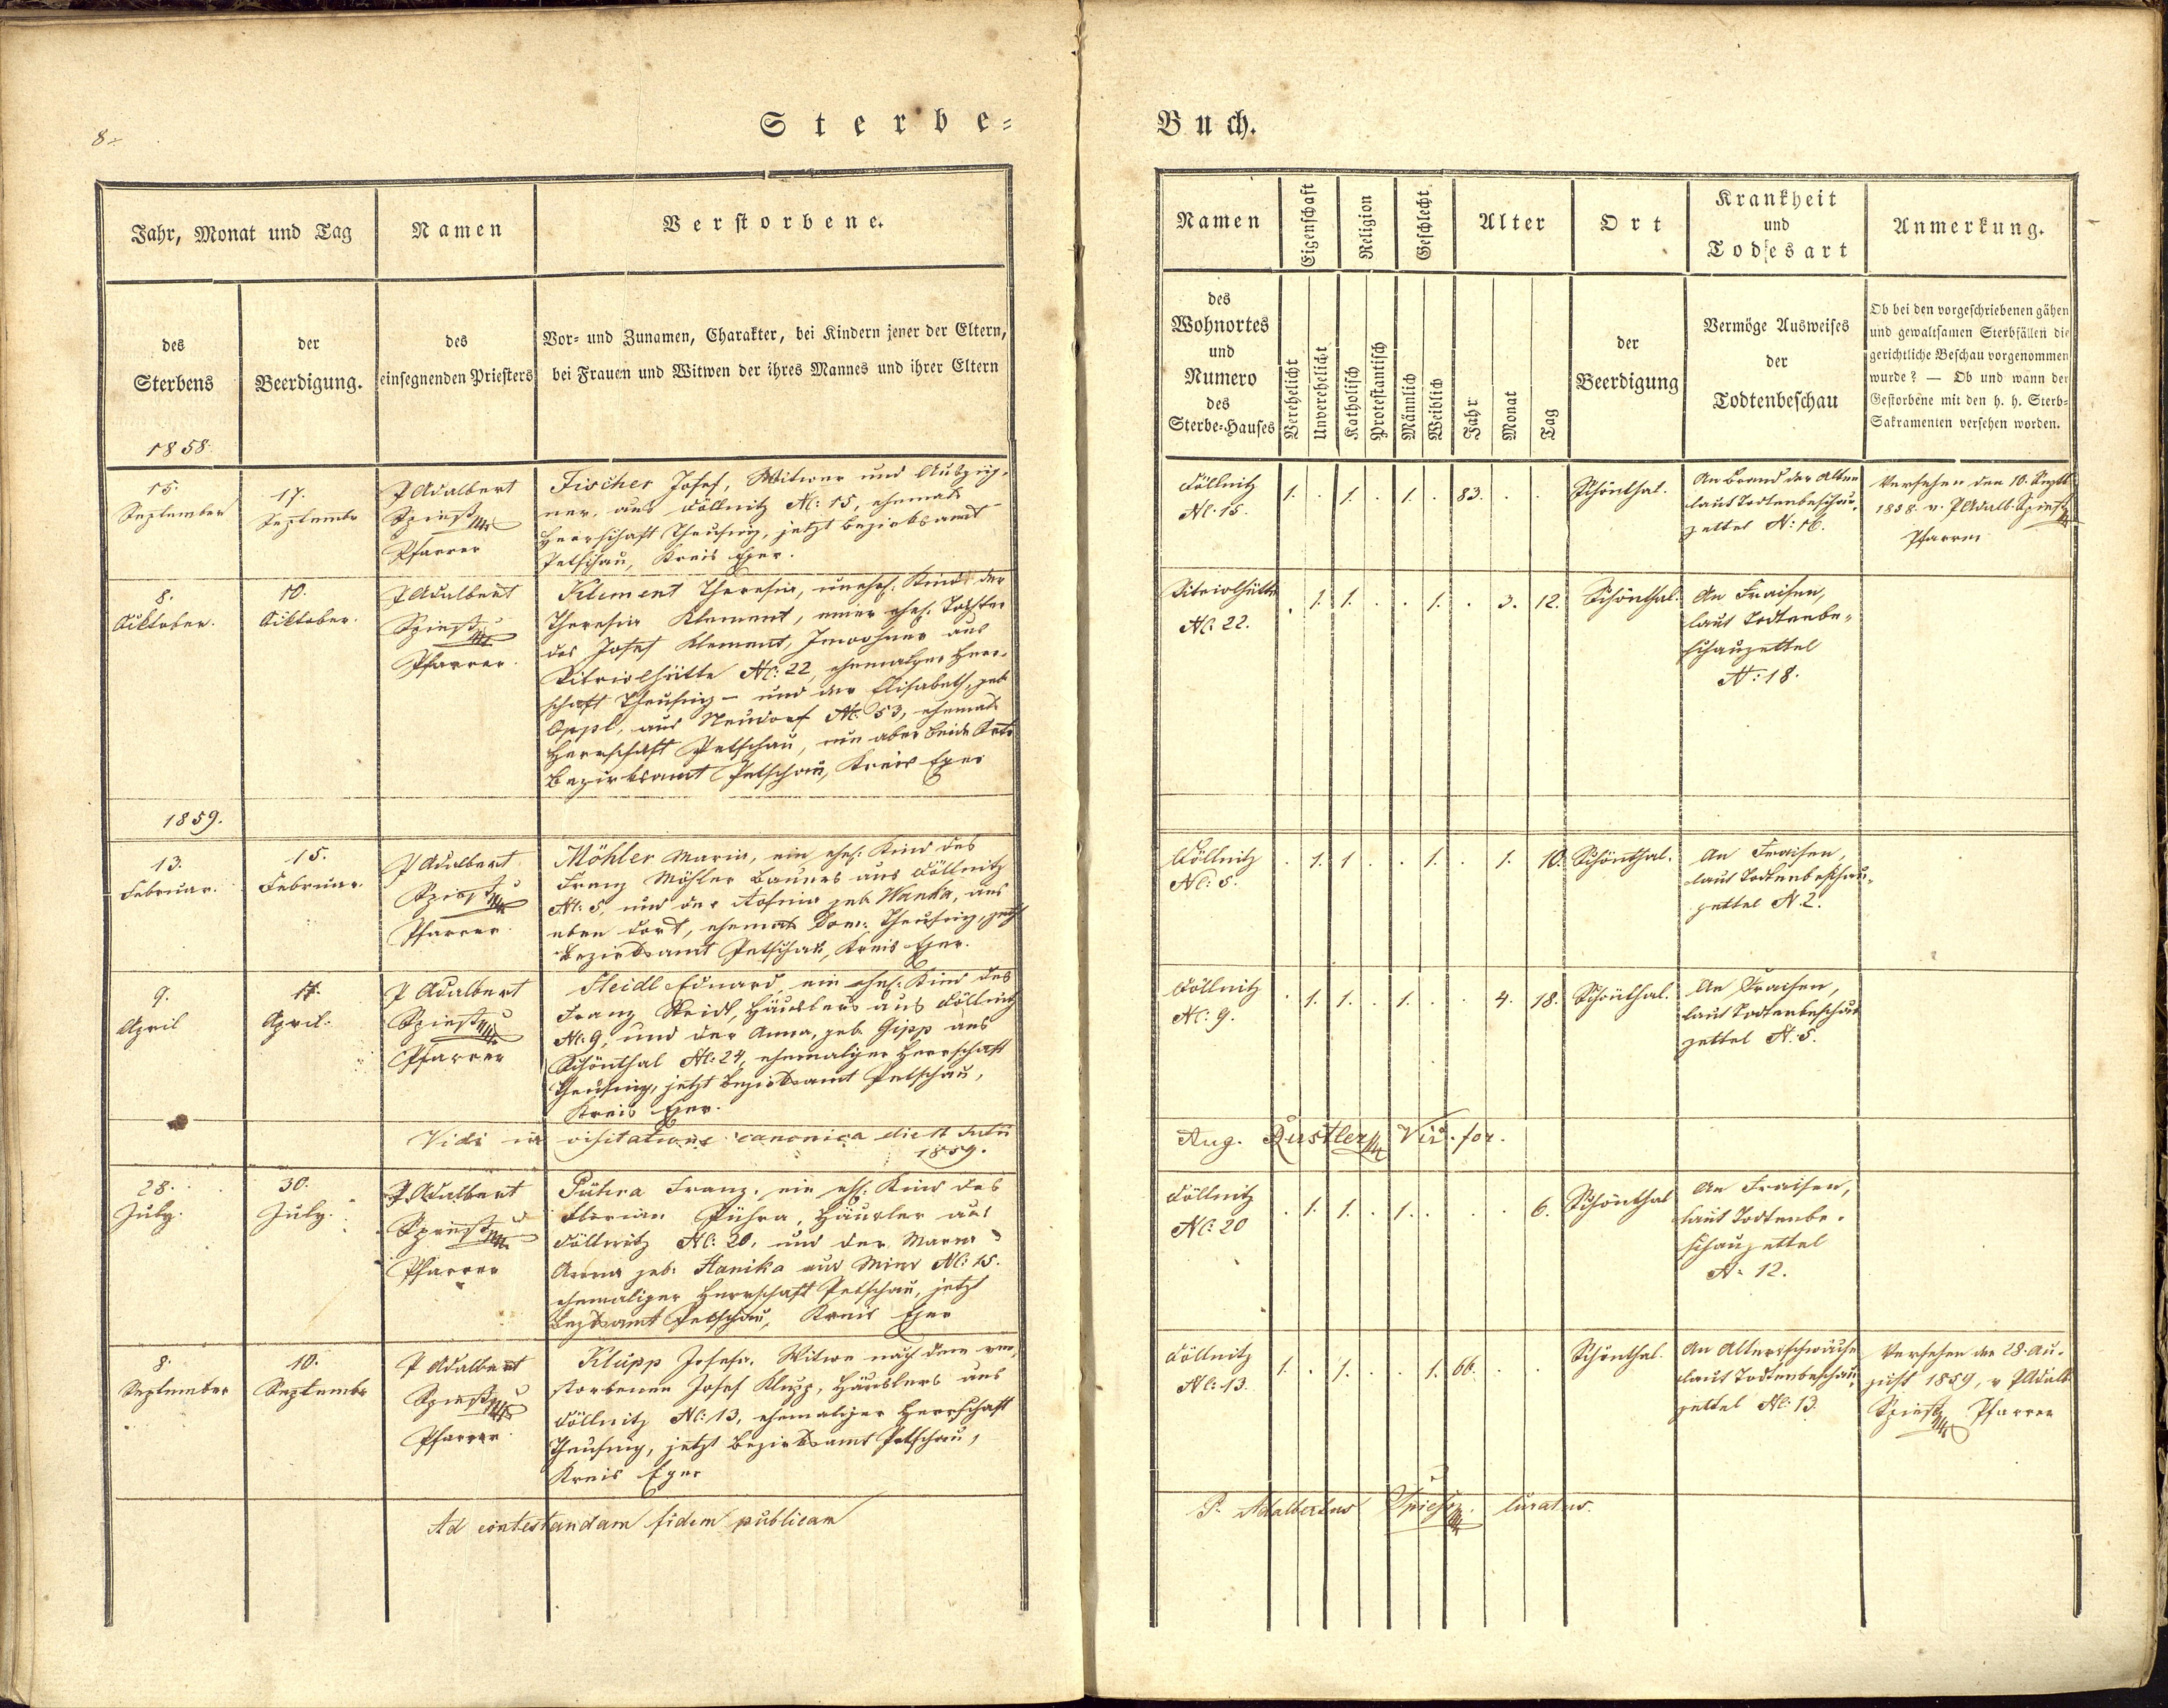 8.
Sterbe=
Jahr, Monat und Tag
Namen
Verstorbene.
des
Sterbens
der
Beerdigung.
des
einsegnenden Priesters
Vor- und Zunamen, Charakter, bei Kindern jener der Eltern,
bei Frauen und Witwen der ihres Mannes und ihrer Eltern
1858.
15.
September
17.
Septembr
P Adalbert
Spiess
Pfarrer
Fischer Josef, Witwer und Auszüg-
ner, aus Döllnitz N: 15, ehemals
Herrschaft Theusing, jetzt Bezirksamt
Petschau, Kreis Eger.
8.
Oktober.
10.
Oktober.
P Adalbert
Spiess
Pfarrer.
Klement Theresia, unehel. Kind der
Theresia Klement, einer ehel. Tochter
des Josef Klement, Inwohner aus
Vitriolhütte N: 22, ehemaliger Herr-
schaft Theusing – und der Elisabeth, geb
Oppl, aus Neudorf N: 53, ehemals
Herrschaft Petschau, nun aber beide Orte
Bezirksamt Petschau, Kreis Eger
1859.
13.
Februar.
15.
Februar.
P Adalbert
Spiess
Pfarrer.
Möhler Maria, ein ehel. Kind des
Franz Möhler Bauers aus Döllnitz
N: 5, und der geb. Wanka, aus
eben dort, ehemals Dom: Theusing, jetzt
Bezirksamt Petschau, Kreis Eger.
9.
April
11.
April.
P Adalbert
Spiess
Pfarrer
Steidl Eduard, ein ehel. Kind des
Franz Steidl, Häuslers aus Döllnitz
N: 9, und der Anna, geb. Gipp aus
Schönthal N: 24, ehemaliger Herrschaft
Theusing, jetzt Bezirksamt Petschau,
Kreis Eger.
Vidi in visitatione canonica die 11 Julii
1859.
28.
July.
30.
July.
P Adalbert
Spiess
Pfarrer
Pühra Franz, ein ehl. Kind des
Florian Pühra, Häusler aus
Döllnitz N: 20, und der Maria
Anna geb. Hanika aus N: 15.
ehemaliger Herrschaft Petschau, jetzt
Bezksamt Petschau, Kreis Eger
8.
September
10.
Septembr
P Adalbert
Spiess
Pfarrer.
Klupp Josefa, Witwe nach dem ver-
storbenen Josef Klupp, Häuslers aus
Döllnitz N: 13, ehemaliger Herrschaft
Theusing, jetzt Bezirksamt Petschau,
Kreis Eger
Ad contestandam fidem publicam
Buch.
Namen
Eigenschaft
Religion
Geschlecht
Alter
Ort
Krankheit
und
Todesart
Anmerkung.
des
Wohnortes
und
Numero
des
Sterbe-Hauses
Verehelicht
Unverehelicht
Katholisch
Protestantisch
Männlich
Weiblich
Jahr
Monat
Tag
der
Beerdigung
Vermöge Ausweises
der
Todtenbeschau
Ob bei den vorgeschriebenen gähen
und gewaltsamen Sterbfällen die
gerichtliche Beschau vorgenommen
wurde? — Ob und wann der
Gestorbene mit den h. h. Sterb=
Sakramenten versehen worden.
Döllnitz
N. 15.
1. . 1. . 1. . 83. . .
Schönthal.
An Brand der Alten
laut Todtenbeschau-
zettel N: 16.
Versehen den 10. Septb
1858 v. P Adalb. Spiess
Pfarrer
Vitriolhütte
N. 22.
. 1. 1. . . 1. . 3. 12.
Schönthal.
An Fraisen,
laut Todtenbe-
schauzettel
N: 18.
Döllnitz
N: 5.
. 1. 1 . . 1. . 1. 10.
Schönthal.
An Fraisen,
laut Todtenbeschau-
zettel N. 2.
Döllnitz
N: 9.
. 1. 1. . 1. . . 4. 18.
Schönthal.
An Fraisen,
laut Todtenbeschau
zettel N. 5.
Aug. Rustler Vic. for.
Döllnitz
N: 20
. 1. 1. . 1. . . . 6.
Schönthal
An Fraisen,
laut Todtenbe-
schauzettel
N. 12.
Döllnitz
N: 13.
1. . 1. . . 1. 66. . .
Schönthal.
An Altersschwäche
laut Todtenbeschau-
zettel N: 13.
Versehen den 28. Au-
gust 1859, v P Adalb
Spiess Pfarrer
P. Adalbertus Spiess. Curatus.